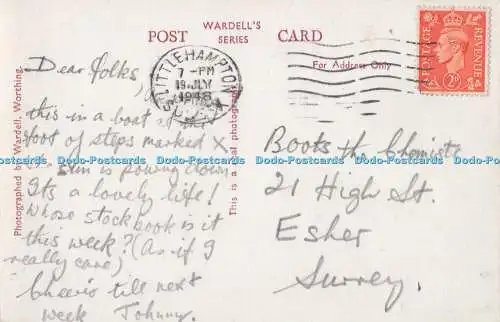 WARDELL'S
POST SERIES CARD
For Address Only
LITTLEHAMPTON
7 - PM
19 JLY
1948
POSTAGE REVENUE
2D
Photographed by Wardell, Worthing.
This is a real photograph
Dear folks,
this in a boat at the
foot of steps marked X
sun is pouring down
Its a lovely life!
Whose stockbook is it
this week? (As if I
really care)
Cheerio till next
week Johnny.
Boots the Chemists
21 High St.
Esher
Surrey.
Dodo-Postcards Dodo-Postcards Dodo-Postcards Dodo-Postcards Dodo-Postcards Dodo-Postcards